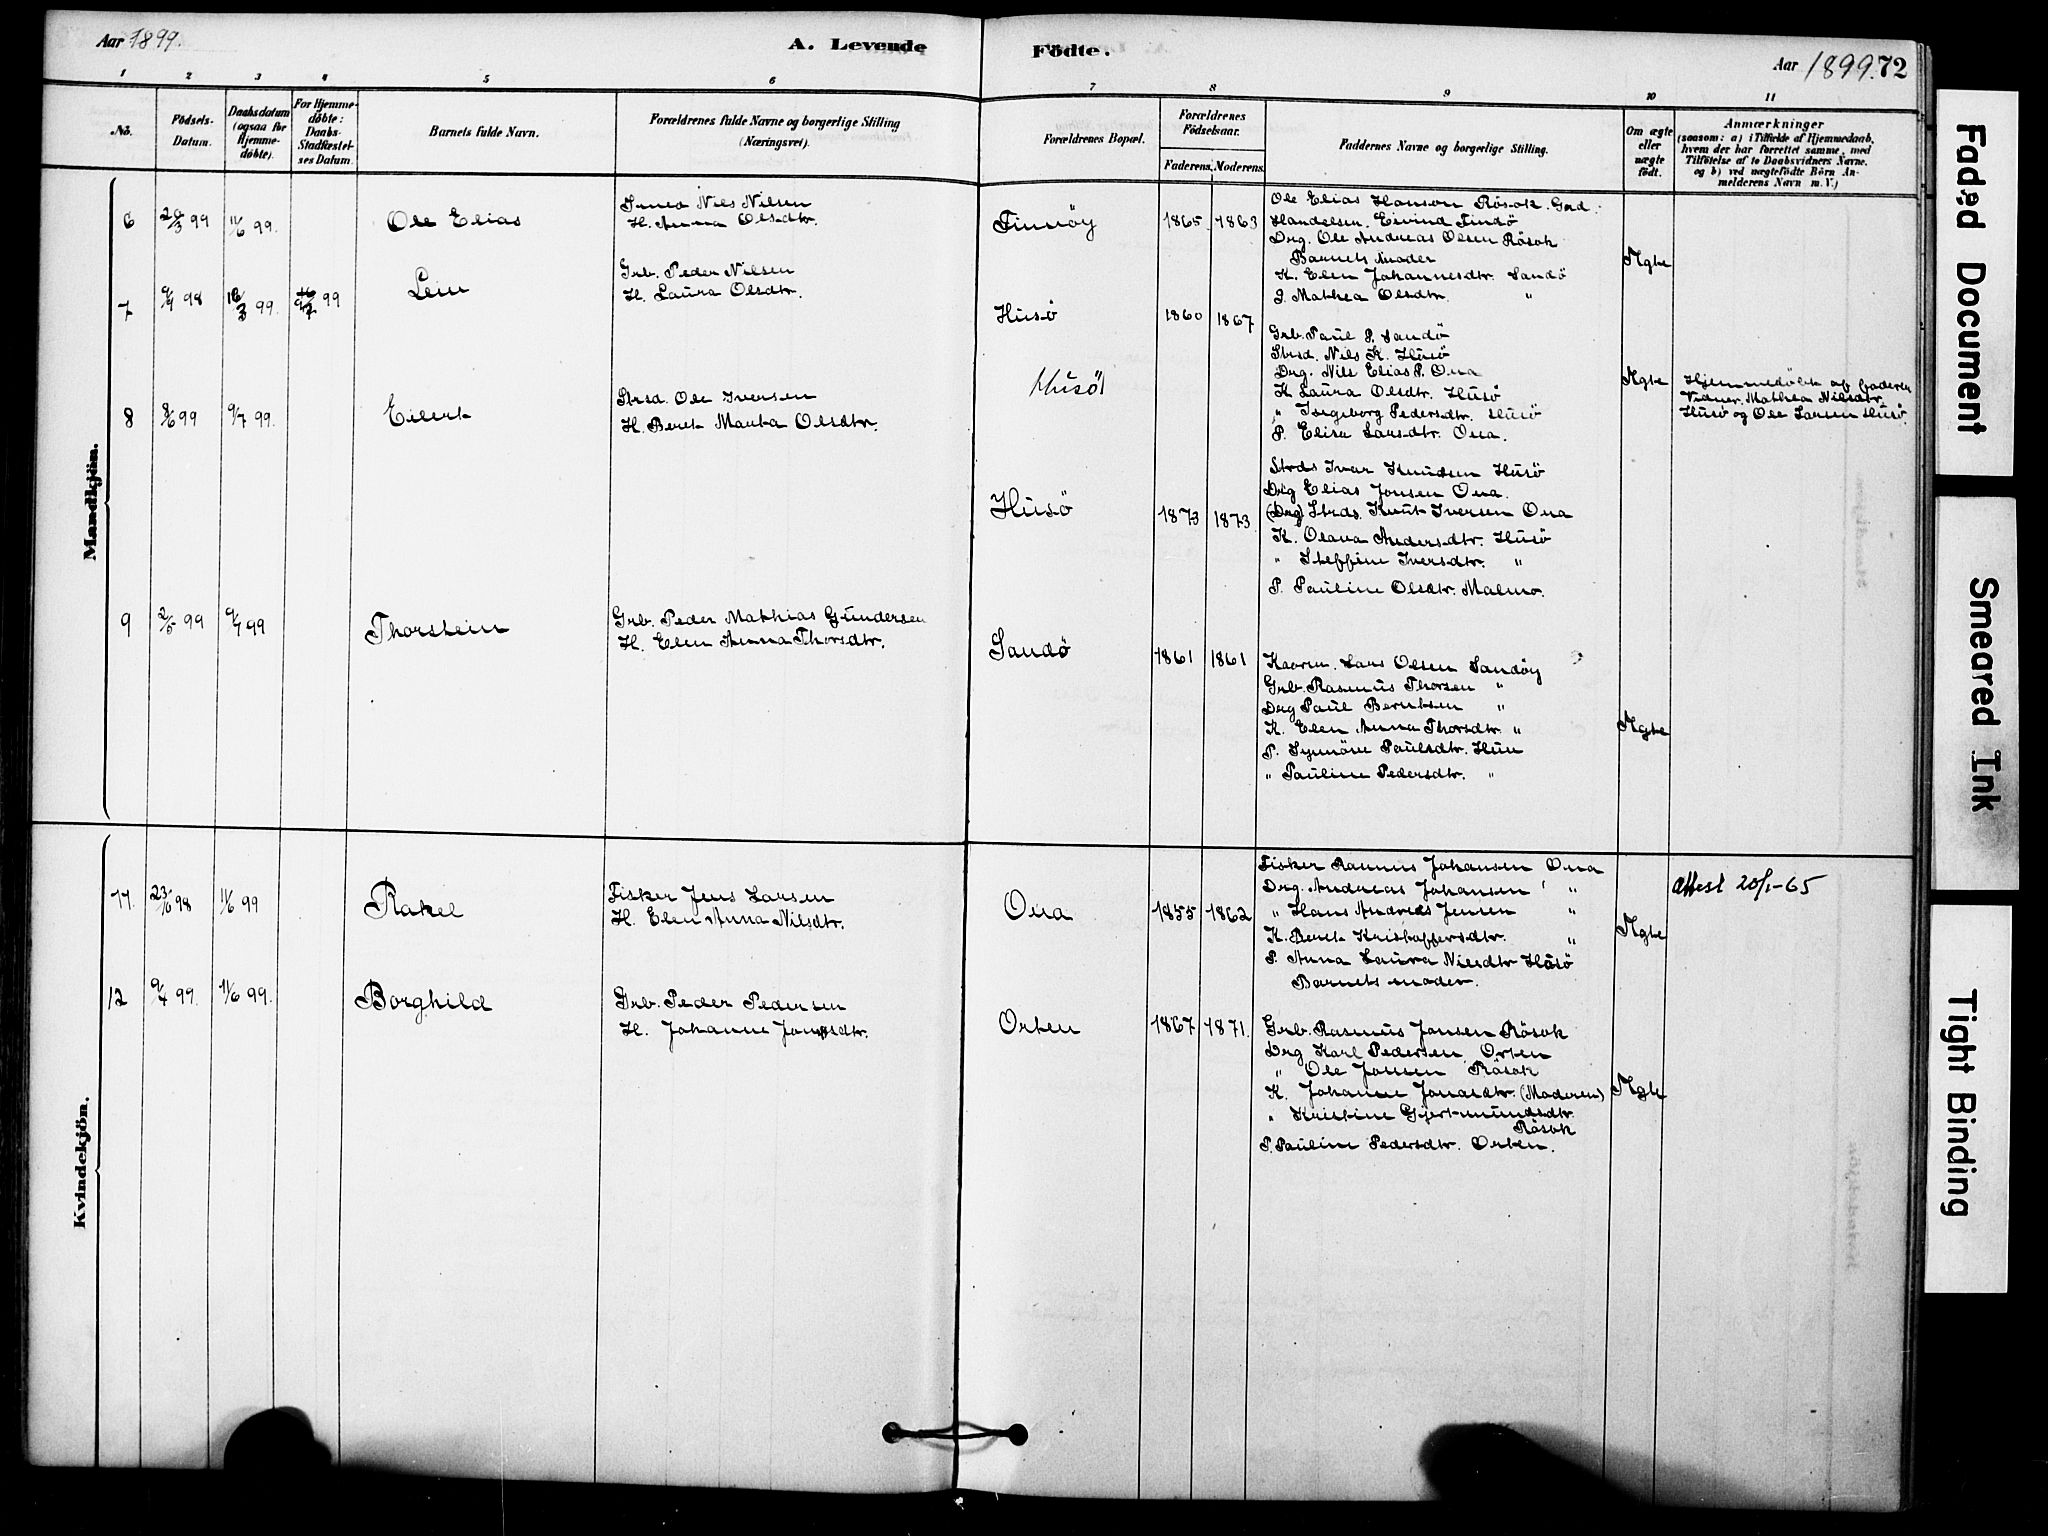 Aar 1899.
A. Levende Födte.
Aar 1899. 72
1 2 3 4 5 6 7 8 9 10 11
No.
Födsels-Datum.
Daabsdatum (ogsaa for Hjemme-döbte).
For Hjemme-döbte: Daabs-Stadfæstel-ses Datum.
Barnets fulde Navn.
Forældrenes fulde Navne og borgerlige Stilling (Næringsvei).
Forældrenes Bopæl.
Forældrenes Födselsaar.
Faderens. Moderens.
Faddernes Navne og borgerlige Stilling.
Om ægte eller uægte födt.
Anmærkninger
(saasom: a) i Tilfælde af Hjemmedaab,
hvem der har forrettet samme, med
Tilföielse af to Daabsvidners Navne.
og b) ved uægtefödte Börn An-
melderens Navn m. V.)
Mandkjön.
6 99 11/6 99. Ole Elias
Nils Nilsen
H. Anna Olsdtr.
Finnöy 1865. 1863
Ole Elias Hanson Rösok. Grd.
Handelsm. Eivind Findö
Drg. Ole Andreas Olsen Rösok
Barnets Moder
K. Elen Johannesdtr. Sandö
P. Mathea Olsdtr. "
Ægte
7 98 99. 99
Grb. Peder Nilsen
H. Laura Olsdtr.
Husö 1860 1867
Grb. Paul P. Sandö
Strsd. Nils K. Husö
Drg. Nils Elias P. Ona
K Laura Olsdtr. Husö
" Ingeborg Pedersdtr. Husö
P. Elise Larsdtr. Ona.
Ægte
Hjemmedöbt af faderen
Vidner. Mathea Nilsdtr.
Husö og Ole Larsen Husö.
8 8/6 99 9/7 99. Eilert
Strsd. Ole Iversen
H. Beret Marta Olsdtr.
Husö
Husö 1873 1873
Strds Ivar Knudsen Husö
Drg Elias Jonsen Ona.
(Drg) Strds. Knut Iversen Ona
K. Olava Andersdtr. Husö
" Steffine Iversdtr. "
P. Pauline Olsdtr. Malmo.
9 2/5 99 9/7 99 Thorstein
Grb. Peder Mathias Gundersen
H. Elen Anna Thorsdtr.
Sandö 1861 1861
Lars Olsen Sandöy
Grb. Rasmus Thorsen "
Drg Paul Berntsen "
K. Elen Anna Thorsdtr. "
P. Synnöve Paulsdtr. Hun
" Pauline Pedersdtr. "
Ægte
Kvindekjön.
11. 98 11/6 99 Rakel
Fisker Jens Larsen
H. Elen Anna Nilsdtr.
Ona 1855 1862
Fisker Rasmus Johansen Ona
Drg. Andreas Johansen "
" Hans Andreas Jensen "
K. Beret Kristoffersdtr. "
P. Anna Laura Nilsdtr Husö
Barnets moder.
Ægte
Attest 20/1-65
12 9/4 99. 11/6 99. Borghild
Grb. Peder Pedersen
H. Johanne Jonasdtr.
Orten 1867 1871.
Grb. Rasmus Jonsen Rösok
Drg Karl Pedersen Orten
" Ole Jonsen Rösok
K. Johanne Jonasdtr. (Moderen)
" Kristine Gjertmundsdtr.
Rösok
P. Pauline Pedersdtr. Orten.
Ægte
Faded Document
Smeared Ink
Tight Binding